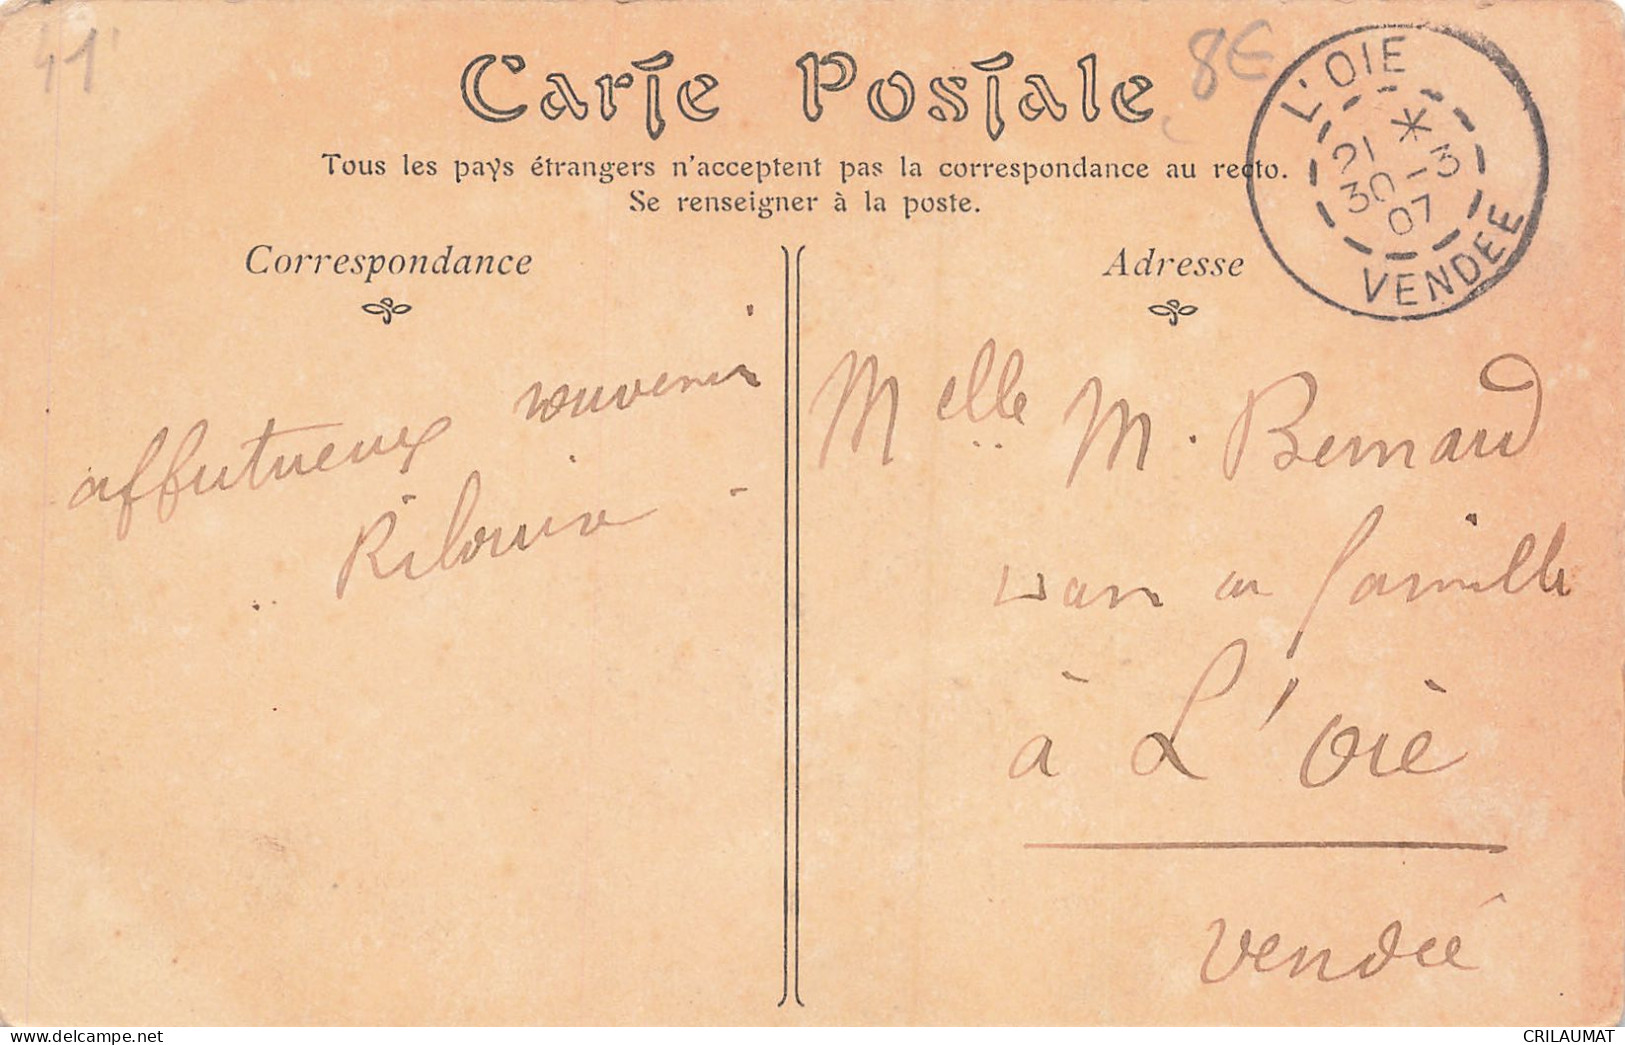 41
Carte Postale
8€
L'OIE
21 *
30-3
07
VENDEE
Tous les pays étrangers n'acceptent pas la correspondance au recto.
Se renseigner à la poste.
Correspondance
Adresse
affectueux souvenir
Melle M. Bernard
dans sa famille
à L'Oie
Vendée
www.delcampe.net
CRILAUMAT